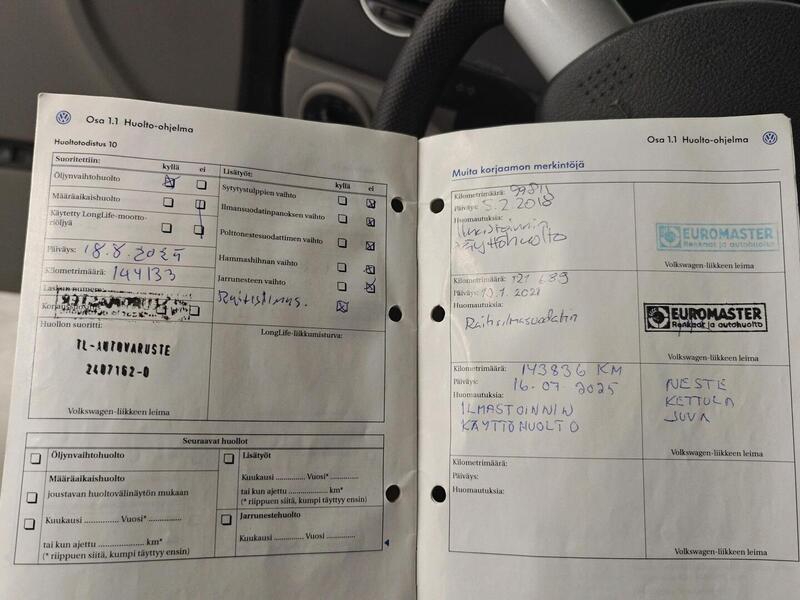 Osa 1.1 Huolto-ohjelma
Huoltotodistus 10
Suoritettiin: kyllä ei
Öljynvaihtohuolto
Määräaikaishuolto
Käytetty LongLife-mootto-
riöljyä
Päiväys: 18.8.2025
Kilometrimäärä: 144133
Huollon suoritti:
TL-AUTOVARUSTE
2407162-0
Volkswagen-liikkeen leima
Lisätyöt: kyllä ei
Sytytystulppien vaihto
Ilmansuodatinpanoksen vaihto
Polttonestesuodattimen vaihto
Hammashihnan vaihto
Jarrunesteen vaihto
LongLife-liikkumisturva:
Seuraavat huollot
Öljynvaihtohuolto
Määräaikaishuolto
joustavan huoltovälinäytön mukaan
Kuukausi .............. Vuosi* ..............
tai kun ajettu .................... km*
(* riippuen siitä, kumpi täyttyy ensin)
Lisätyöt
Kuukausi .............. Vuosi* ..............
tai kun ajettu .................... km*
(* riippuen siitä, kumpi täyttyy ensin)
Jarrunestehuolto
Kuukausi .............. Vuosi ..............
Osa 1.1 Huolto-ohjelma
Muita korjaamon merkintöjä
Kilometrimäärä: 99811
Päiväys: 5.2.2018
Huomautuksia:
Ilmastoinnin
käyttöhuolto
EUROMASTER
Renkaat ja autohuolto
Volkswagen-liikkeen leima
Kilometrimäärä: 121 689
Päiväys: 1.2021
Huomautuksia:
Raitisilmasuodatin
EUROMASTER
Renkaat ja autohuolto
Volkswagen-liikkeen leima
Kilometrimäärä: 143836 KM
Päiväys: 16.07.2025
Huomautuksia:
ILMASTOINNIN
KÄYTTÖHUOLTO
NESTE
KETTULA
JUVA
Volkswagen-liikkeen leima
Kilometrimäärä:
Päiväys:
Huomautuksia:
Volkswagen-liikkeen leima